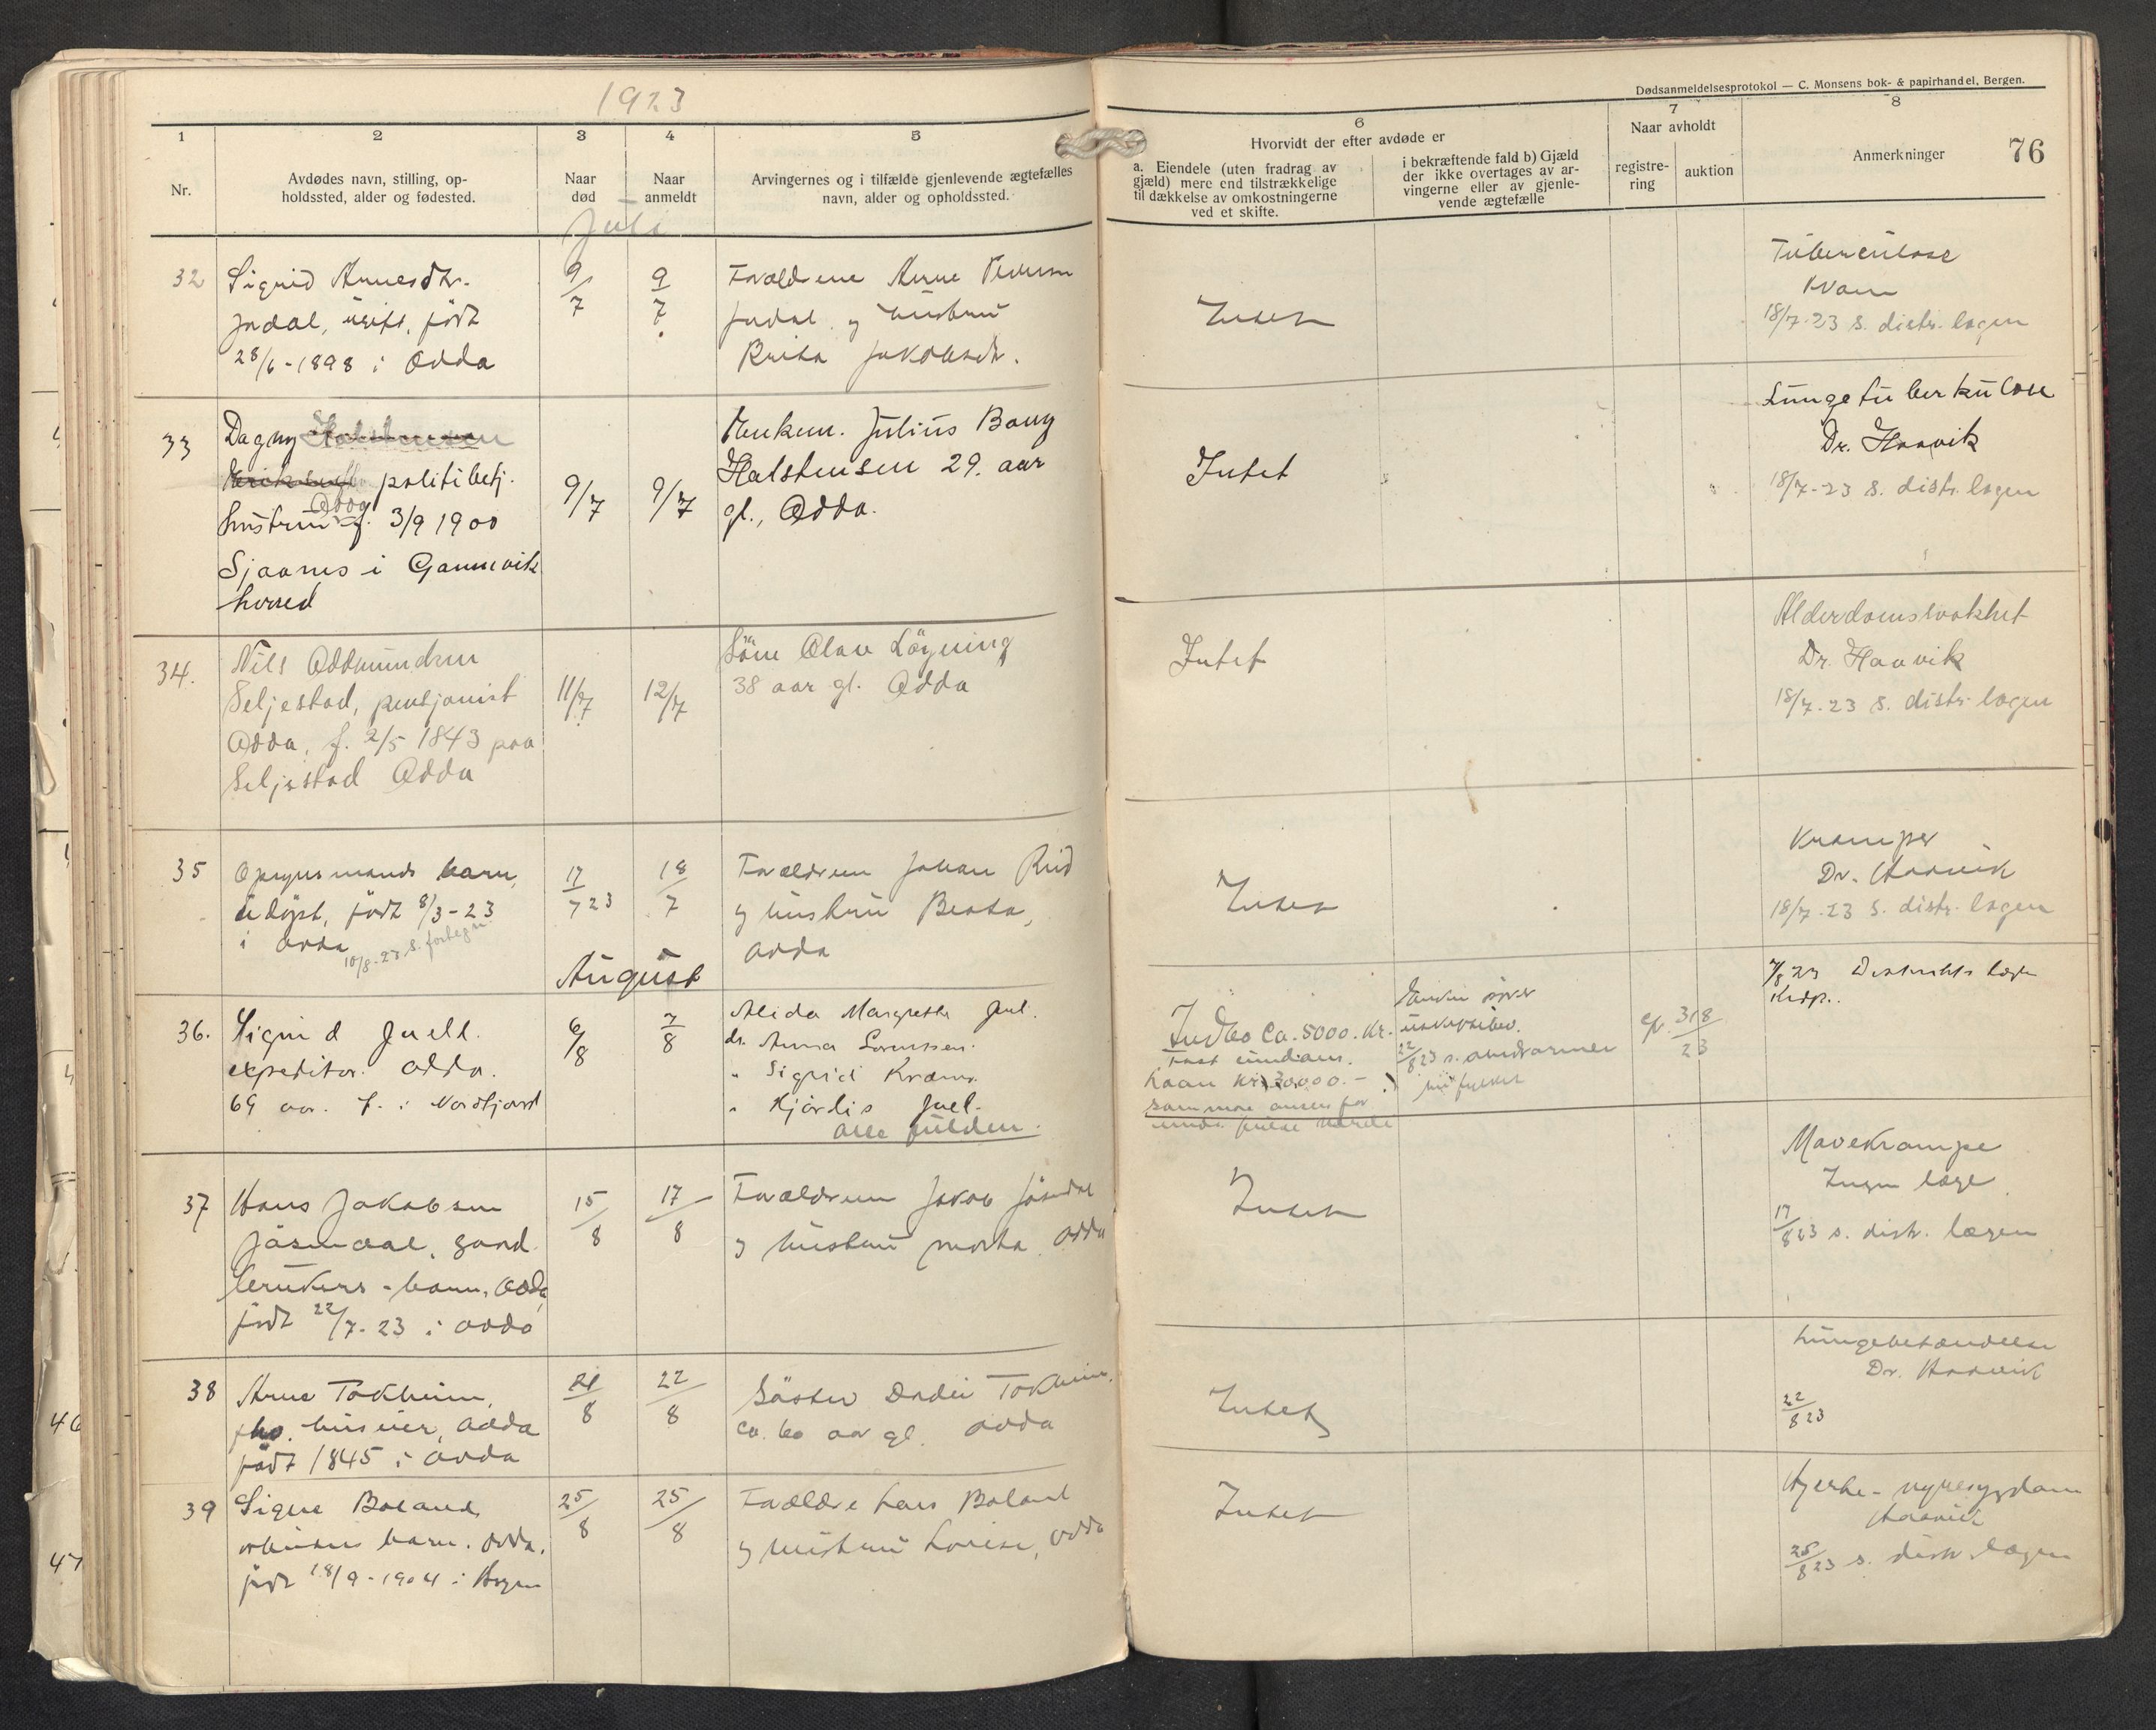 1923
Dødsanmeldelsesprotokol — C. Monsens bok- & papirhandel, Bergen.
76
1
2
3
4
5
6
7
8
Nr.
Avdødes navn, stilling, op-
holdssted, alder og fødested.
Naar
død
Naar
anmeldt
Arvingernes og i tilfælde gjenlevende ægtefælles
navn, alder og opholdssted.
Hvorvidt der efter avdøde er
a. Eiendele (uten fradrag av
gjæld) mere end tilstrækkelige
til dækkelse av omkostningerne
ved et skifte.
i bekræftende fald b) Gjæld
der ikke overtages av ar-
vingerne eller av gjenle-
vende ægtefælle
Naar avholdt
registre-
ring
auktion
Anmerkninger
Juli
32
Sigrid Arnesdtr.
Jndal, ugift, født
28/6-1898 i Odda
9/7
9/7
Forældrene Arne
Jndal og hustru
Brita Jakobsdtr.
Intet
Tuberculose
Kvam
18/7-23 s. distr. lægen
33
Dagny
politibetj.
hustru f. 3/9 1900
Sjaanes i Gamvik
herred
9/7
9/7
Enkem. Julius Bang
Halstensen 29. aar
gl., Odda.
Intet
Lungetuberkulose
Dr. Haavik
18/7-23 S. distr. lægen
34.
Nils Oddmundsen
Seljestad, pensjonist
Odda, f. 2/5 1843 paa
Seljestad Odda
11/7
12/7
Søn Olav Løyning
38 aar gl. Odda
Intet
Alderdomssvakhet
Dr. Haavik
18/7-23 S. distr. lægen
35
Opsynsmands barn,
udøpt, født 8/3-23
i Odda
10/8-23 S. fortegn.
17/7 23
18/7
Forældrene Johan
og hustru Beata,
Odda
Intet
Kramper
Dr. Haavik
18/7-23 S. distr. lægen
August
36.
Sigurd Juell.
expeditør. Odda.
69 aar. f. i Nordfjord
6/8
7/8
Alida Margrethe Juel.
dr. Anna Sørenssen.
" Sigrid
" Hjørdis Juel.
alle
Indbo Ca. 5000. Kr.
Fast eiendom.
Laan Kr.
samme
Enken
uskiftebev.
22/8 23 s.
31/8 23
7/8 23 Distrikts læge
37
Hans Jakobsen
Jøsendal, gaard
brukers - barn, Odda,
født 22/7-23 i Odda
15/8
17/8
Forældrene Jakob Jøsendal
og hustru Marta, Odda
Intet
Mavekrampe
Ingen læge
17/8 23 s. distr. lægen
38
Arne Tokheim,
Odda
født 1845 i Odda
21/8
22/8
Søster Tokheim,
ca. 60 aar gl. Odda
Intet
Lungebetændelse
Dr. Haavik
22/8 23
39
Signe Boland,
barn. Odda.
født 18/9-1904 i Bergen
25/8
25/8
Forældre Lars Boland
og hustru Lovise, Odda
Intet
Hjerte- nyresygdom
Haavik
25/8 23 s. distr. lægen
46
47